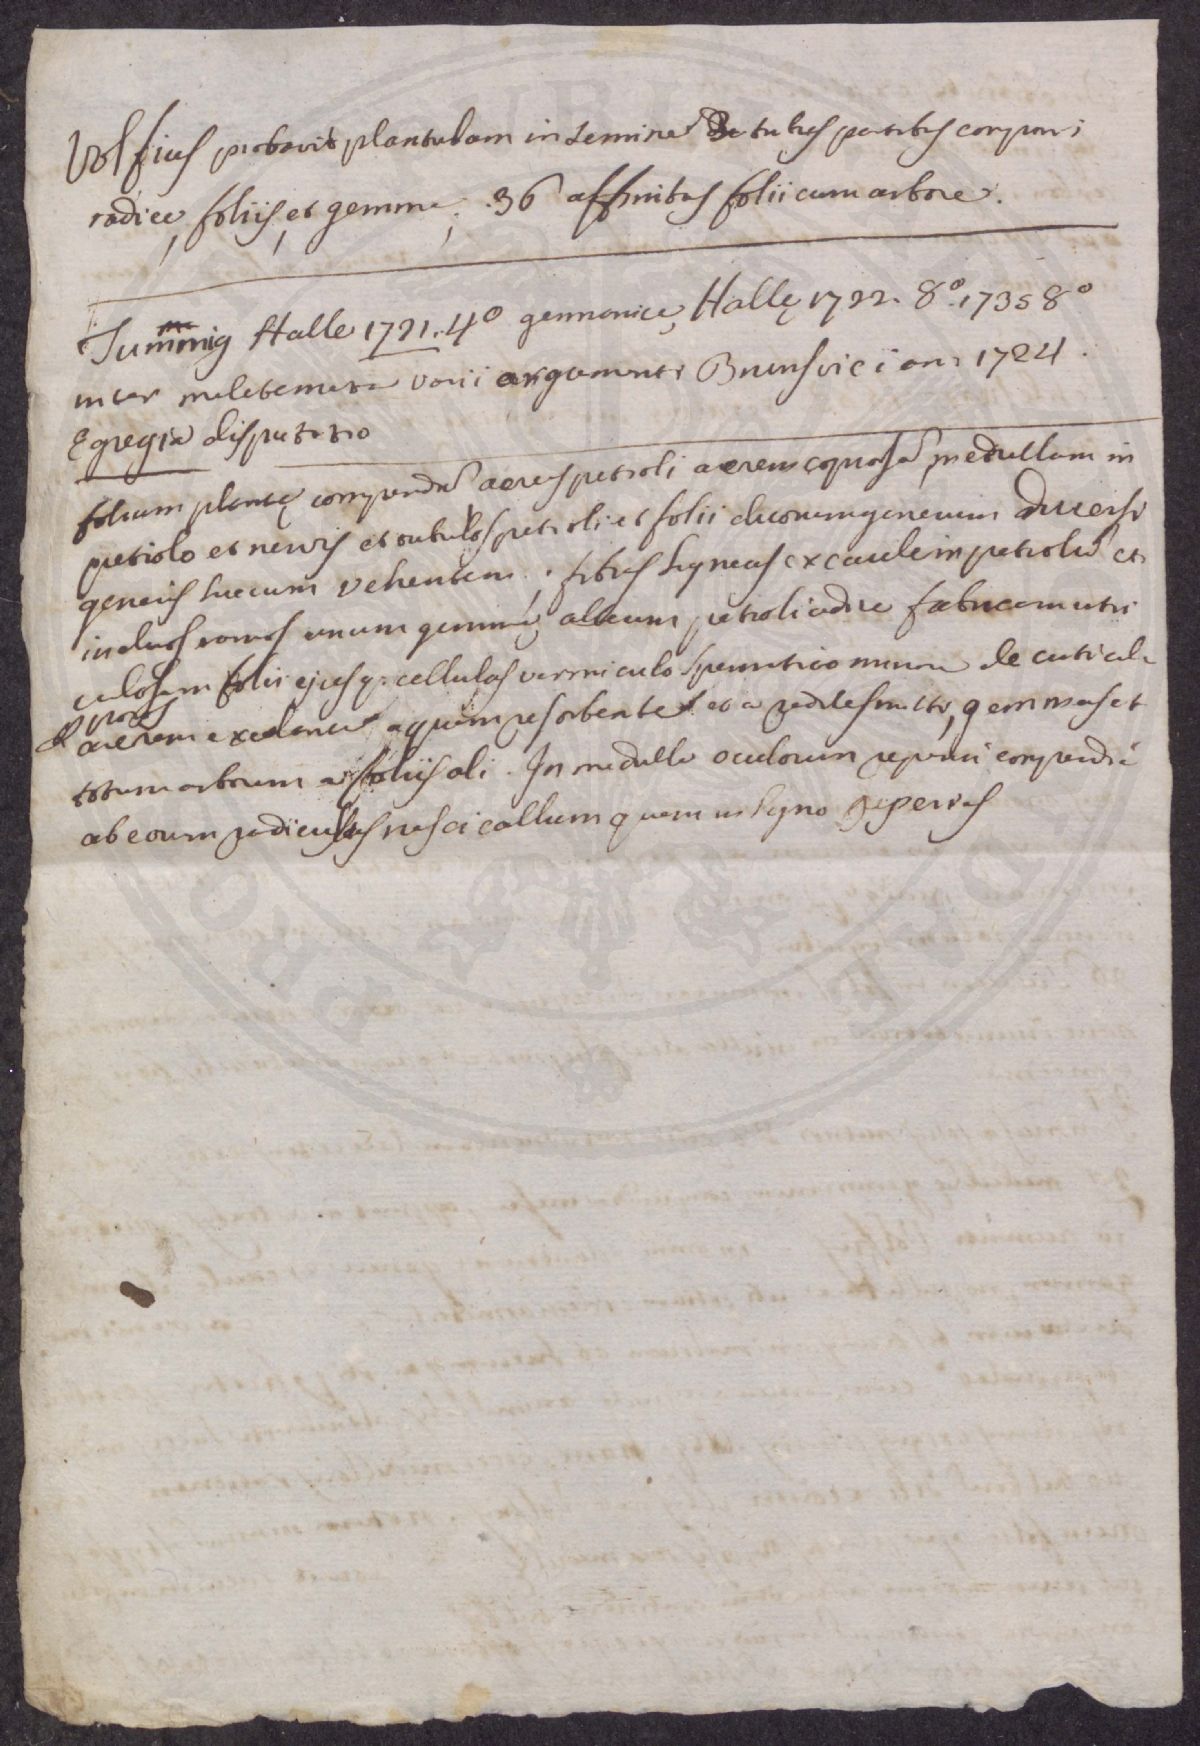 Volfius probavit plantulam in semine tribus partibus componi
radice, foliis, et gemma; 36 affinitas folii cum arbore.
Tummig Halle 1721. 4° germanice, Hallę 1722. 8°. 1735 8°
inter meletemata varii argumenti Brunsvici an 1724.
Egregia disputatio
folium plantę comprendit petioli medullam in
petiolo et nervis et tubulos petioli et folii duorum generum diversi
generis succum vehentem, fibras ligneas ex caule in petiolum et
in duos ramos unum gemmę alterum petioli adire fabricam utri
culosam folii ejusq; cellulas vermiculo spermatico de cuticulę
poris
aerem aquam resorbentes et a radice gemmas et
totam arborem a foliis ali. In medulla oculorum reperiri
ab eorum radiculis nasci callum quem in ligno reperias